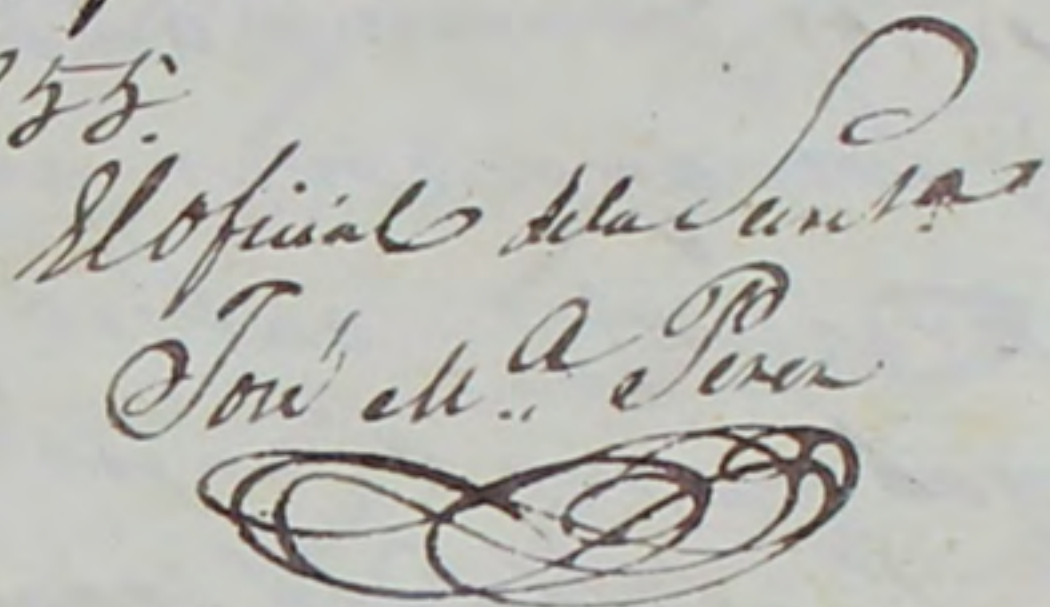 55.
El oficial de la Secret.a
José M.a Perez